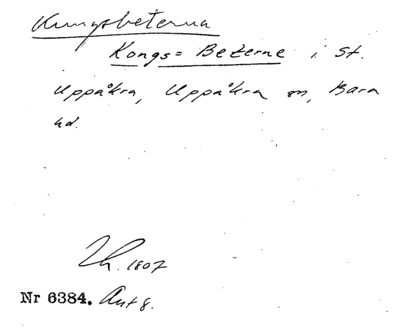 Kungsbeterna
Kongs= Beterne i St.
Uppåkra, Uppåkra sn, Bara
hd.
Th. 1807
Nr 6384. Ant 8.